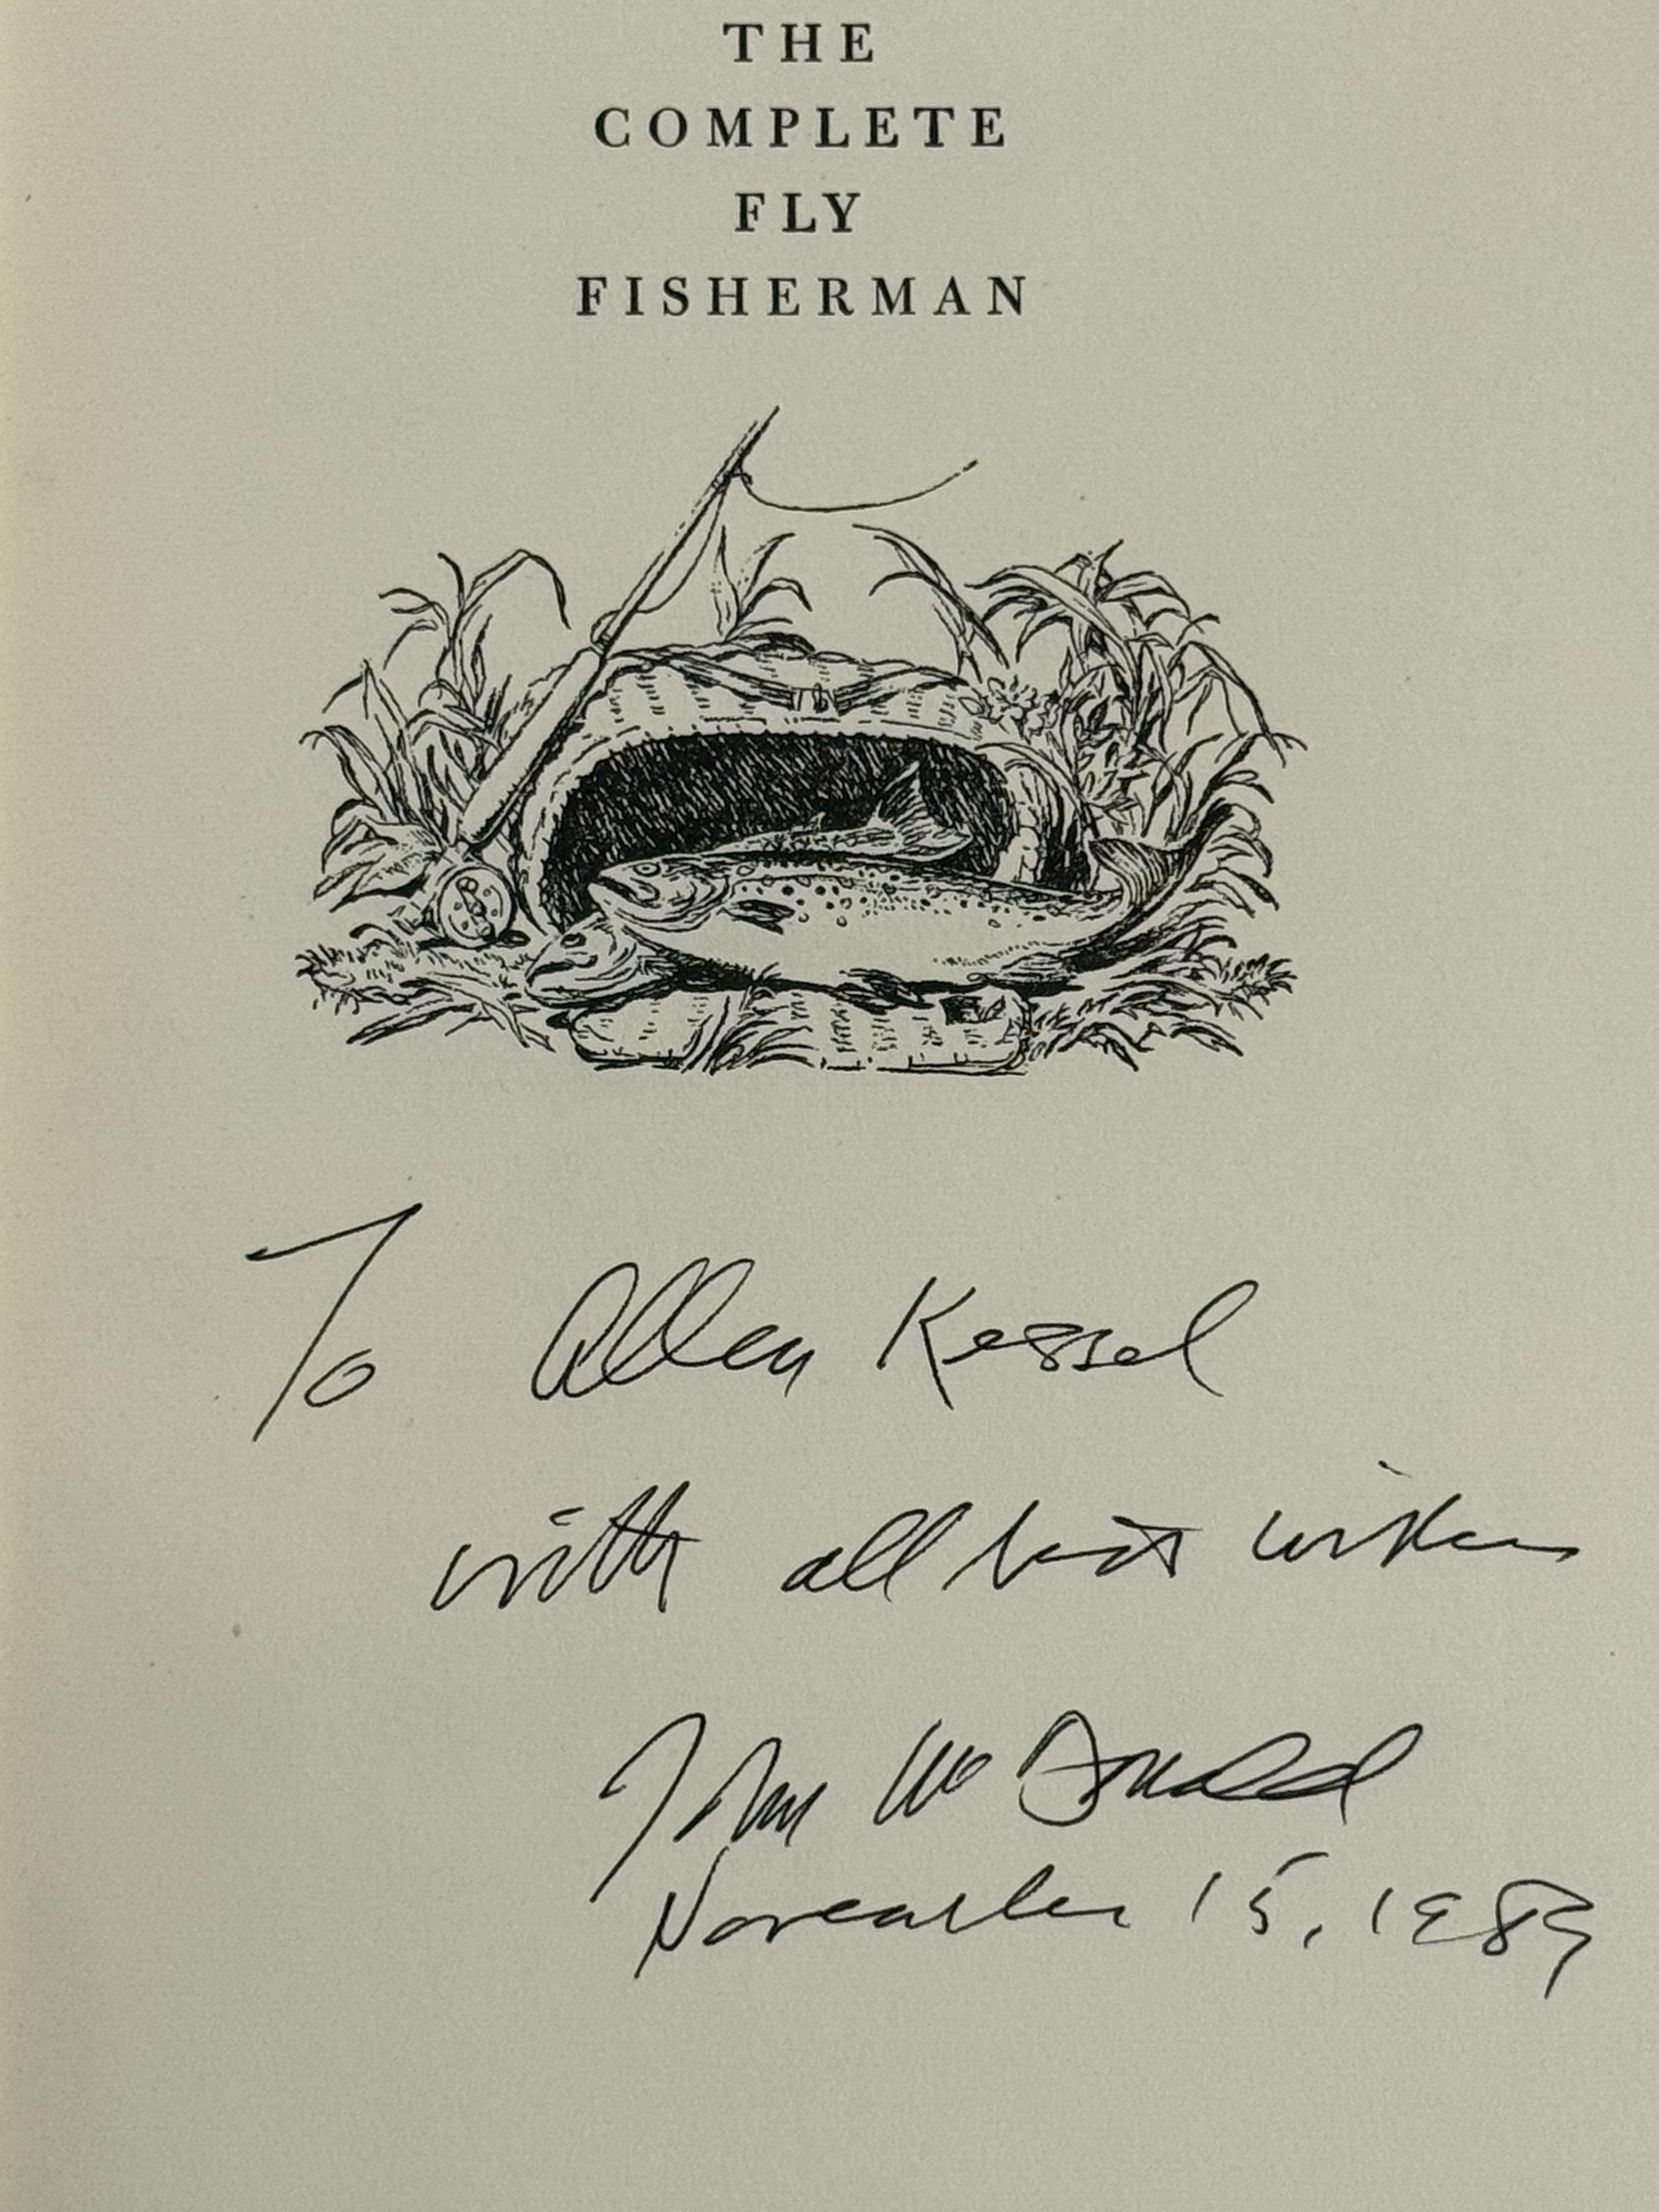 THE
COMPLETE
FLY
FISHERMAN
To Allen Kessel
with all best wishes
John McDonald
November 15, 1989